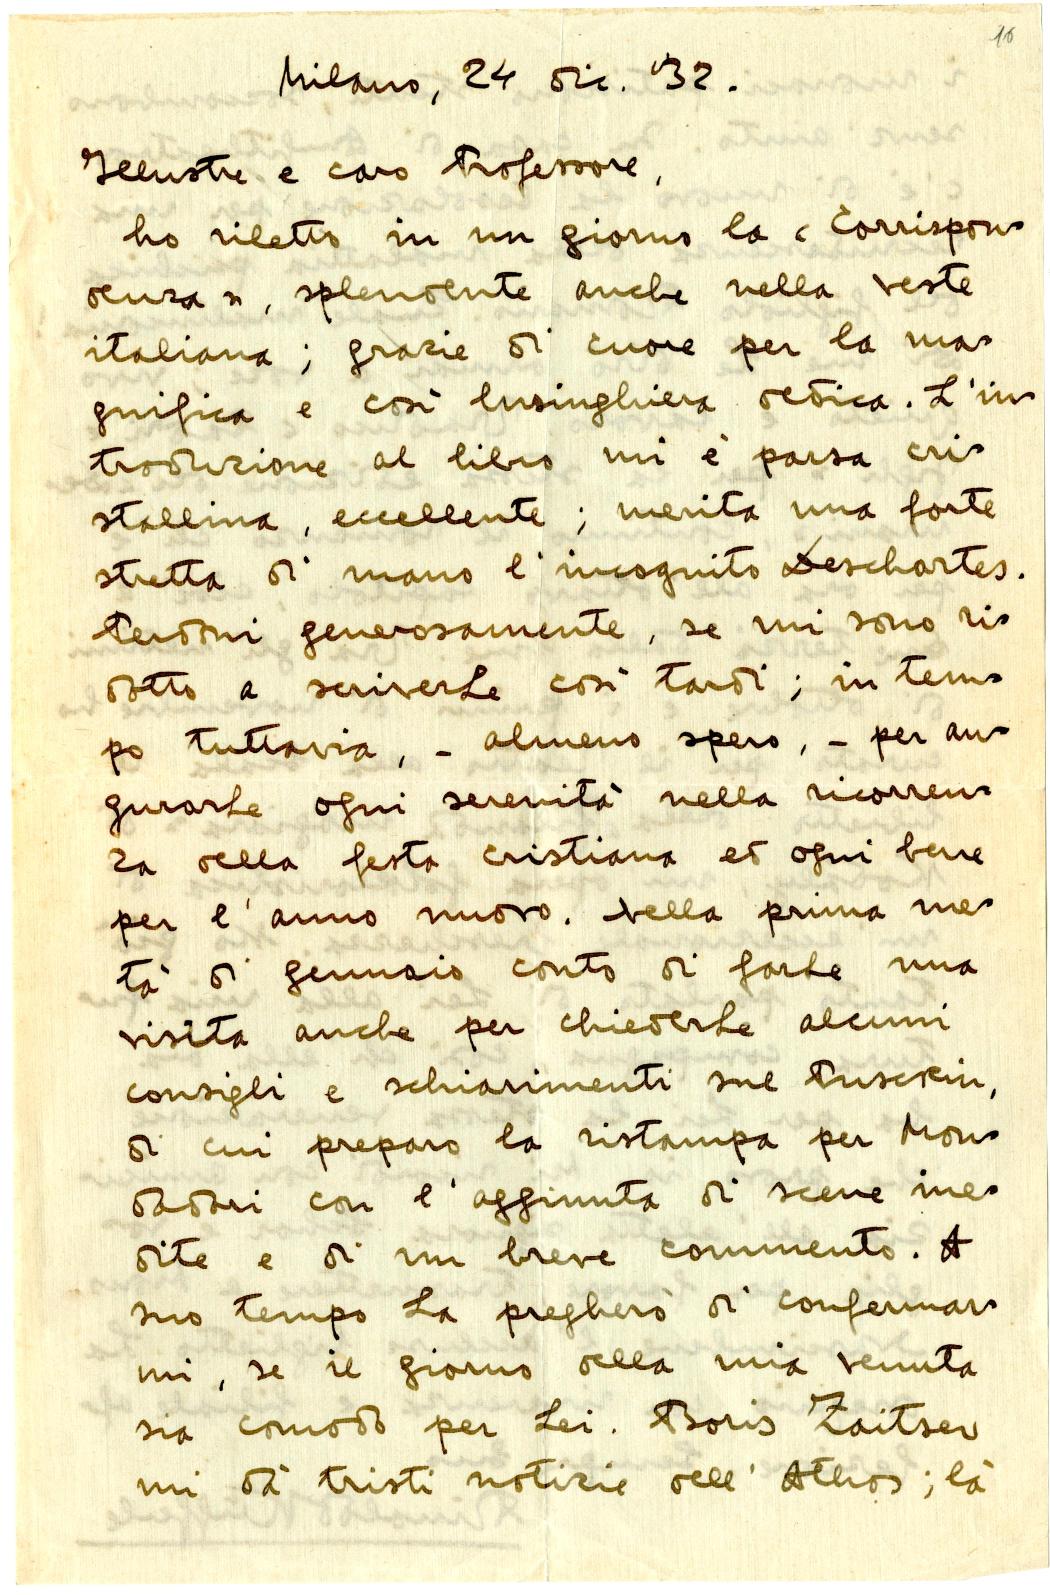 16
Milano, 24 dic. '32.
Illustre e caro Professore,
ho riletto in un giorno la « Corrispon-
denza », splendente anche nella veste
italiana; grazie di cuore per la ma-
gnifica e così lusinghiera dedica. L'in-
troduzione al libro mi è parsa cri-
stallina, eccellente; merita una forte
stretta di mano l'incognito Deschartes.
Perdoni generosamente, se mi sono ri-
dotto a scriverLe così tardi; in tem-
po tuttavia, - almeno spero, - per au-
gurarLe ogni serenità nella ricorren-
za della festa cristiana ed ogni bene
per l'anno nuovo. Nella prima me-
tà di gennaio conto di farLe una
visita anche per chiederLe alcuni
consigli e schiarimenti sul Pusckin,
di cui preparo la ristampa per Mon-
dadori con l'aggiunta di scene ine-
dite e di un breve commento. A
suo tempo La pregherò di confermar-
mi, se il giorno della mia venuta
sia comodo per Lei. Boris Zaitsev
mi dà tristi notizie dell'Athos; là